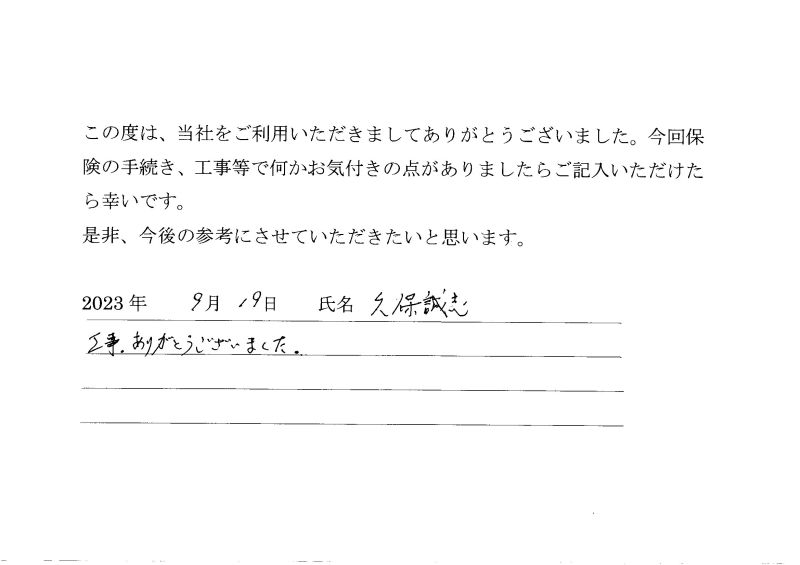 この度は、当社をご利用いただきましてありがとうございました。今回保
険の手続き、工事等で何かお気付きの点がありましたらご記入いただけた
ら幸いです。
是非、今後の参考にさせていただきたいと思います。
2023年 9月 19日 氏名 久保誠志
工事、ありがとうございました。